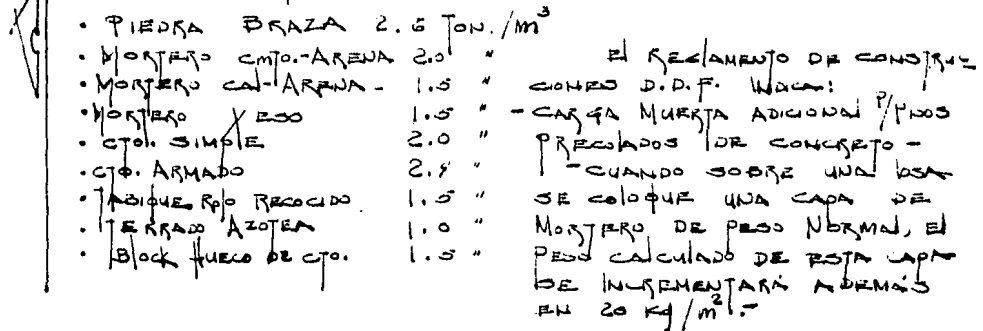 · PIEDRA BRAZA 2.6 TON./m³
· MORTERO CMTO.-ARENA 2.0 "
· MORTERO CAL-ARENA - 1.5 "
· MORTERO YESO 1.5 "
· CTO. SIMPLE 2.0 "
· CTO. ARMADO 2.4 "
· TABIQUE ROJO RECOCIDO 1.5 "
· TERRADO AZOTEA 1.0 "
· BLOCK HUECO DE CTO. 1.5 "
El REGLAMENTO DE CONSTRUC-
CIONES D.D.F. INDICA:
- CARGA MUERTA ADICIONAL P/PISOS
PRECOLADOS DE CONCRETO -
- CUANDO SOBRE UNA LOSA
SE COLOQUE UNA CAPA DE
MORTERO DE PESO NORMAL, El
PESO CALCULADO DE ESTA CAPA
SE INCREMENTARÁ ADEMÁS
EN 20 Kg/m².-